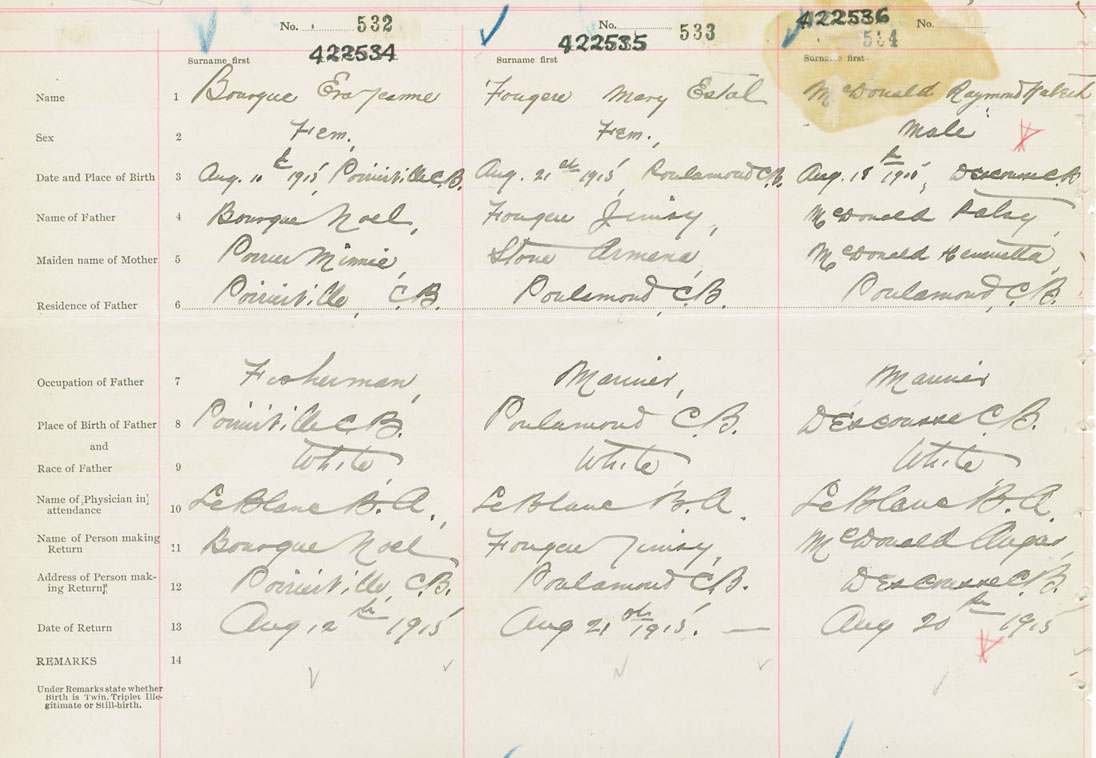 No. 532 No. 533 422536 No.
422534 422535 534
Surname first Surname first Surname first
Name 1 Bourque Eva Jeanne Fougere Mary Estal McDonald Raymond
Sex 2 Fem, Fem, Male
Date and Place of Birth 3 Aug. 10th 1915, Poirierville C.B. Aug. 21st 1915, Poulamond C.B. Aug. 18th 1915, Descousse C.B.
Name of Father 4 Bourque Noel, Fougere Jimisy, McDonald Patsy,
Maiden name of Mother 5 Poirier Minnie, Stone Armena, McDonald Henrietta,
Residence of Father 6 Poirierville, C.B. Poulamond, C.B. Poulamond, C.B.
Occupation of Father 7 Fisherman, Mariner, Mariner
Place of Birth of Father 8 Poirierville C.B. Poulamond C.B. DEscousse C.B.
and
Race of Father 9 White White White
Name of Physician in attendance 10 LeBlanc B.A., LeBlanc B.A. LeBlanc B.A.
Name of Person making Return 11 Bourque Noel Fougere Jimisy, McDonald Angus,
Address of Person making Return 12 Poirierville, C.B. Poulamond C.B. DEscousse C.B.
Date of Return 13 Aug 12th 1915 Aug 21st 1915. — Aug 20th 1915
REMARKS 14
Under Remarks state whether
Birth is Twin, Triplet Ille-
gitimate or Still-birth.